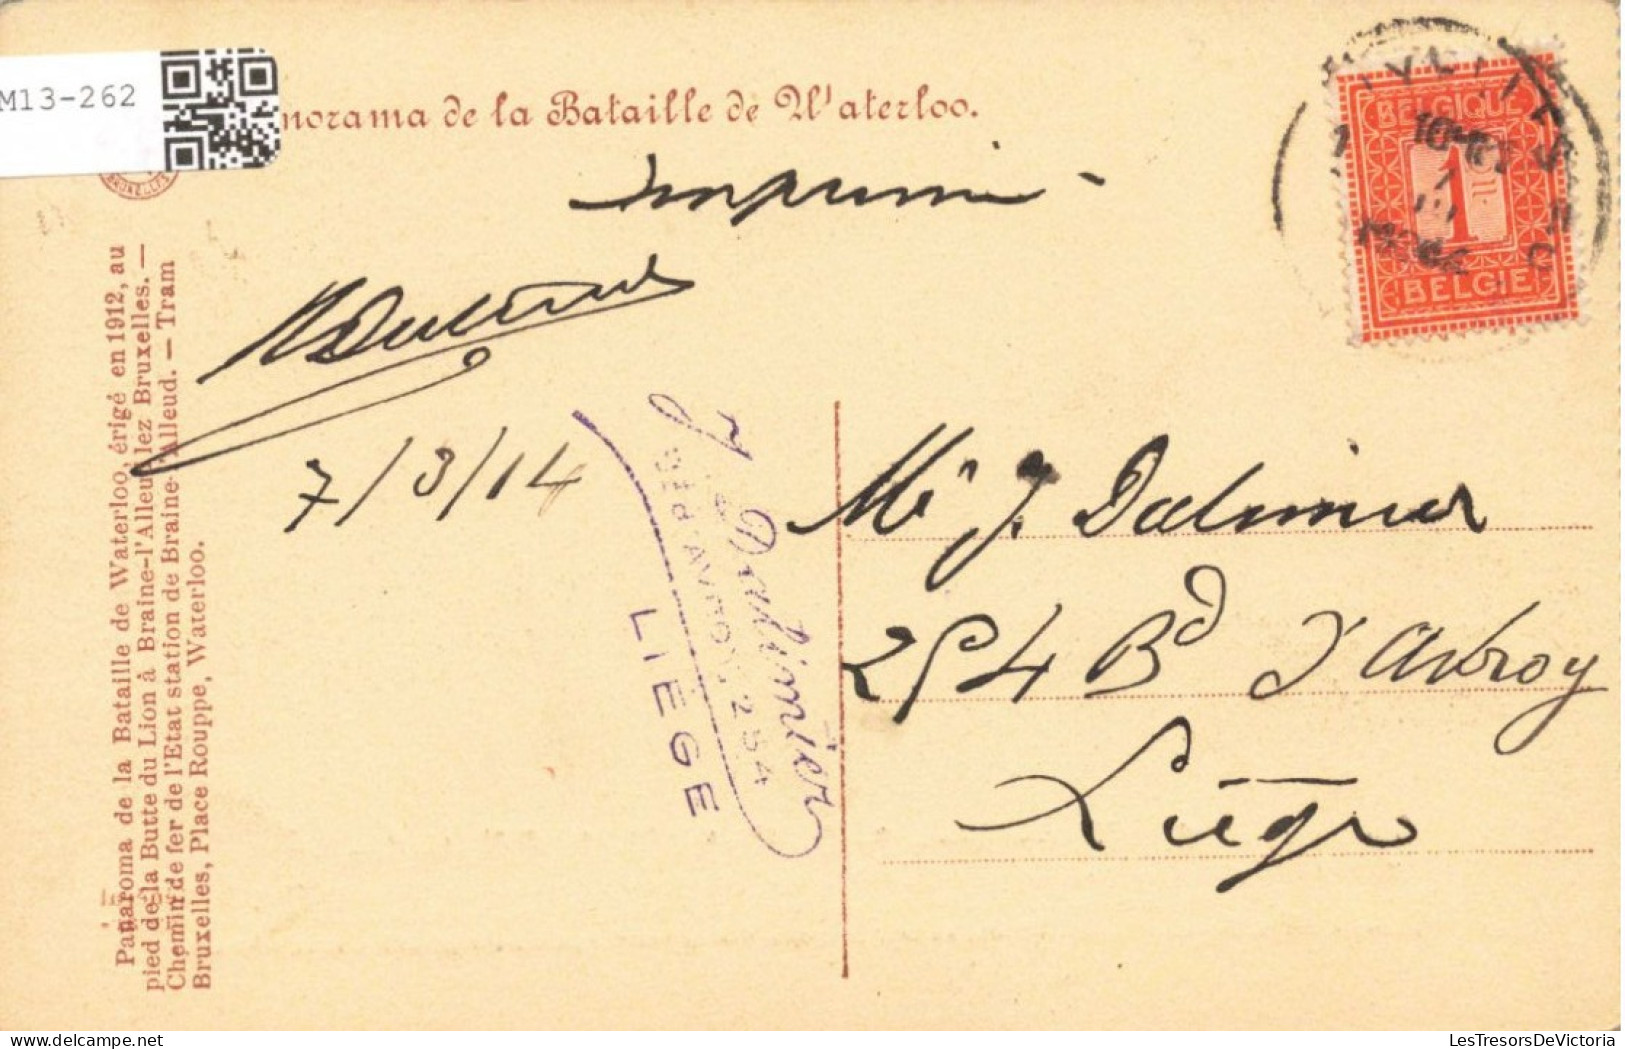 M13-262
norama de la Bataille de Waterloo.
BRUXELLES
Imprimé -
7/3/14
BELGIQUE
1
BELGIË
Panaroma de la Bataille de Waterloo, érigé en 1912, au
pied de la Butte du Lion à Braine-l'Alleu lez Bruxelles. —
Chemin de fer de l'Etat station de Braine-Alleud. — Tram
Bruxelles, Place Rouppe, Waterloo.
J Dalimier
254
LIÉGE
Mr J. Dalimier
254 Bd d'Avroy
Liége
LesTresorsDeVictoria